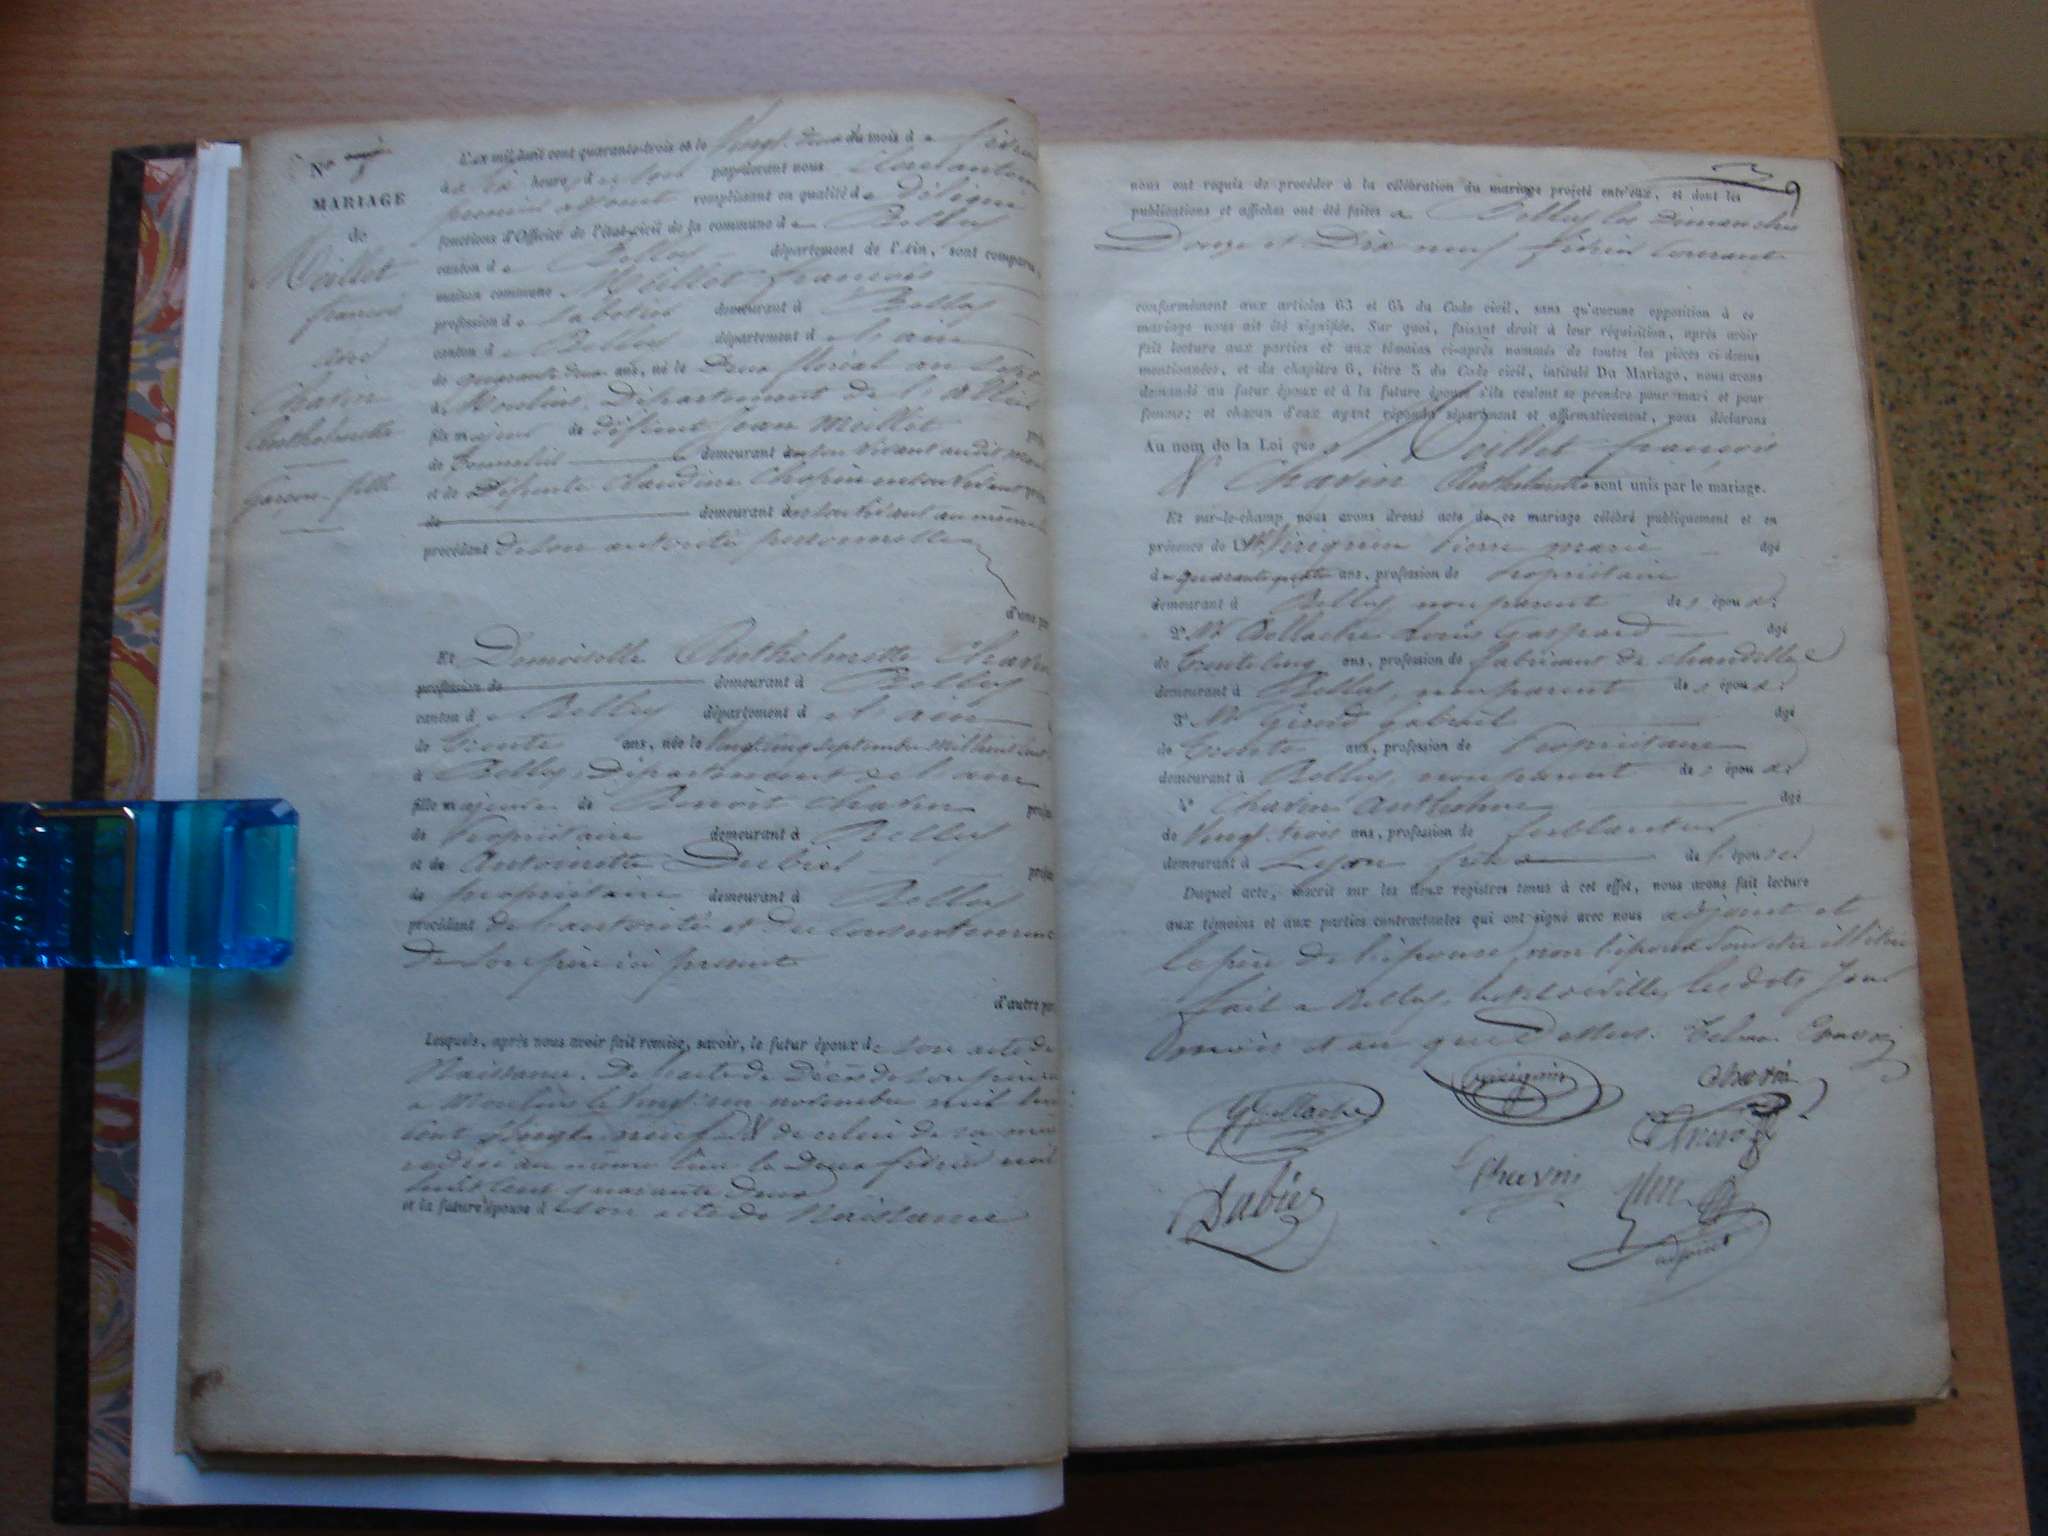 No
MARIAGE
de
Meillet
françois
avec
Chavin
Anthelmette
Garçon fille
L'an mil huit cent quarante-trois et le Vingt deux du mois de février
à heure du pardevant nous
premier adjoint remplissant en qualité de Délégué
fonctions d'Officier de l'état-civil de la commune de Belley
canton de Belley département de l'Ain, sont comparus,
maison commune Meillet françois
profession de Sabotier demeurant à Belley
canton de Belley département de l'ain
de quarante deux ans, né le Deux floréal an Sept
à Moulins, Département de l'Allier
fils majeur de défunt Jean Meillet
de Tonnelier demeurant de son vivant audit
et de Défunte Claudine Chopin en son vivant
de demeurant de son vivant au même
procédant de son autorité personnelle
d'une par
Et Demoiselle Anthelmette Chavin
profession de demeurant à Belley
canton de Belley département de l'ain
de Trente ans, née le Vingt cinq septembre mil huit cent
à Belley, Département de l'ain
fille majeure de Benoit Chavin
de Propriétaire demeurant à Belley
et de Antoinette Dubiez
de propriétaire demeurant à Belley
procédant de l'autorité et du consentement
de son père ici présent
d'autre par
Lesquels, après nous avoir fait remise, savoir, le futur époux de son acte de
Naissance. De l'acte de Décès de son père
à Moulins le Vingt un novembre mil huit
Cent Vingt neuf & de celui de sa mère
au même lieu le Deux février mil
huit Cent quarante deux
et la future épouse de son acte de Naissance
9
nous ont requis de procéder à la célébration du mariage projeté entr'eux, et dont les
publications et affiches ont été faites à Belley les Dimanches
Douze et Dix neuf février Courant
conformément aux articles 63 et 64 du Code civil, sans qu'aucune opposition à ce
mariage nous ait été signifiée. Sur quoi, faisant droit à leur réquisition, après avoir
fait lecture aux parties et aux témoins ci-après nommés de toutes les pièces ci-dessus
mentionnées, et du chapitre 6, titre 5 du Code civil, intitulé Du Mariage, nous avons
demandé au futur époux et à la future épouse s'ils veulent se prendre pour mari et pour
femme; et chacun d'eux ayant répondu séparément et affirmativement, nous déclarons
Au nom de la Loi que Meillet françois
& Chavin Anthelmette sont unis par le mariage.
Et sur-le-champ nous avons dressé acte de ce mariage célébré publiquement et en
présence de 1° Mr Pierre marie âgé
de quarante quatre ans, profession de Propriétaire
demeurant à Belley, non parent des époux;
2° Mr Bellache Louis Gaspard âgé
de Trente cinq ans, profession de fabricant de chandelles
demeurant à Belley, non parent des époux;
3° Mr Girod Gabriel âgé
de Trente ans, profession de Propriétaire
demeurant à Belley, non parent des époux;
4° Chavin Anthelme âgé
de Vingt trois ans, profession de ferblantier
demeurant à Lyon frère de l'épouse.
Duquel acte, inscrit sur les deux registres tenus à cet effet, nous avons fait lecture
aux témoins et aux parties contractantes qui ont signé avec nous adjoint et
le père de l'épouse, non l'époux pour être illitéré
fait à Belley, hôtel de Ville, les dits Jour
mois et an que Dessus.
Chavin
Dubiez
Chavin
adjoint